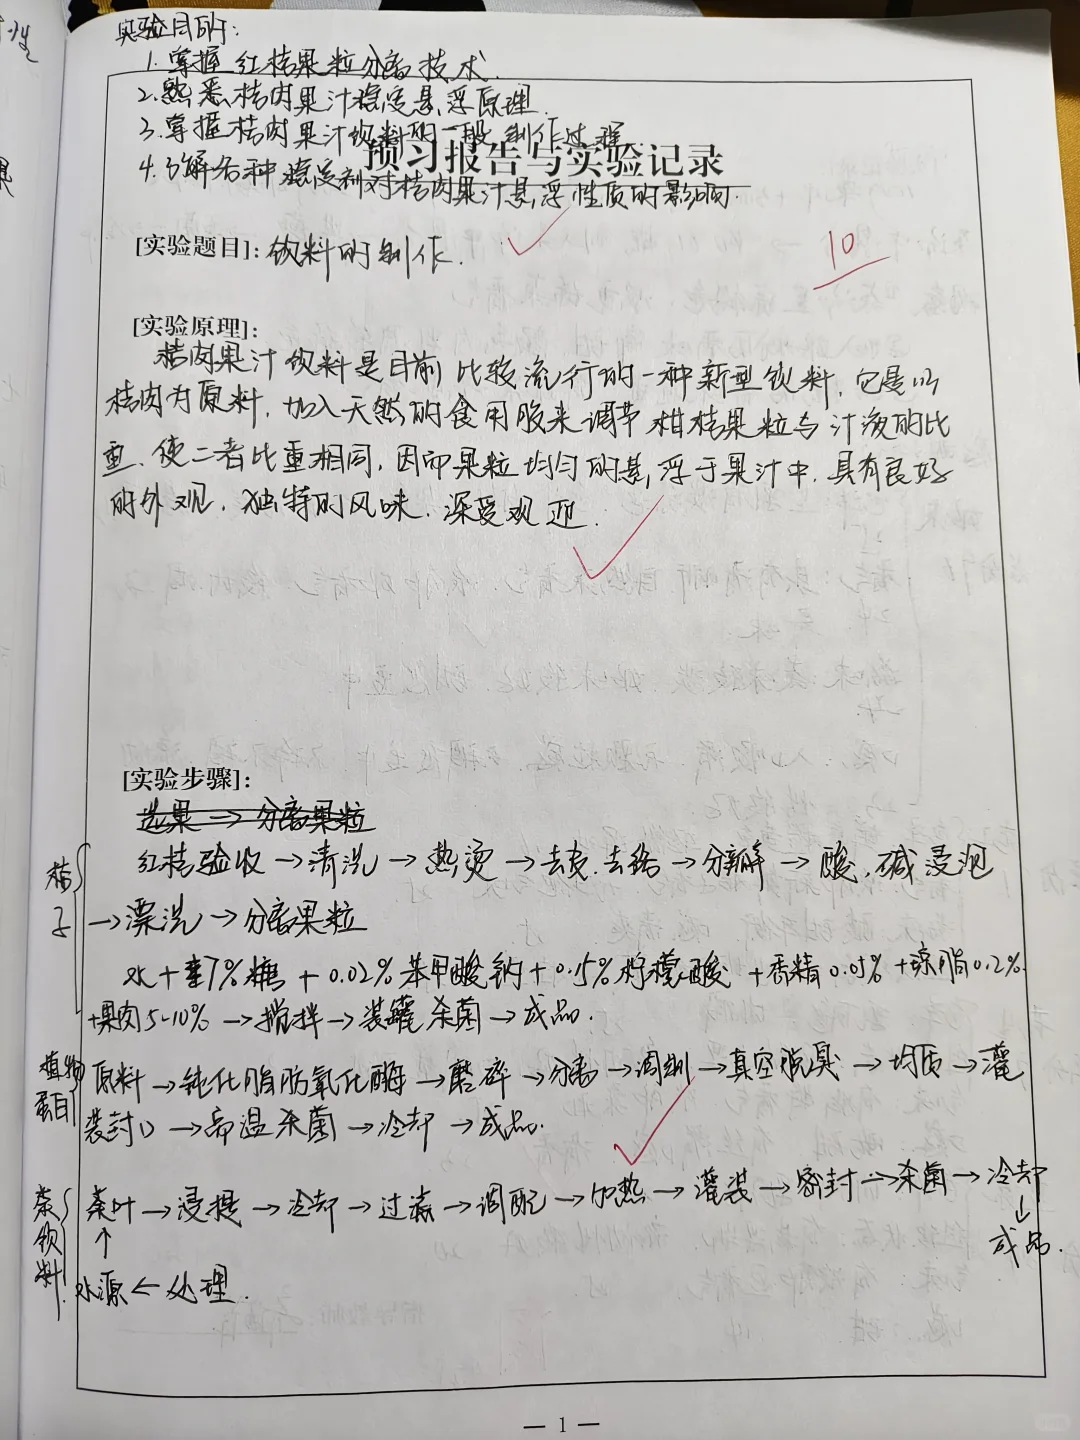 实验目的:
1.掌握红桔果粒分离技术.
2.熟悉桔肉果汁稳定悬浮原理.
3.掌握桔肉果汁饮料的一般制作过程
预习报告与实验记录
4.了解各种稳定剂对桔肉果汁悬浮性质的影响.
[实验题目]: 饮料的制作.
10
[实验原理]:
桔肉果汁饮料是目前比较流行的一种新型饮料,它是以
桔肉为原料,加入天然的食用胶来调节柑桔果粒与汁液的比
重、使二者比重相同,因而果粒均匀的悬浮于果汁中,具有良好
的外观,独特的风味,深受观迎.
[实验步骤]:
选果→分离果粒
桔子
红桔验收→清洗→热烫→去皮、去络→分瓣→酸、碱浸泡
→漂洗→分离果粒
水+7%糖+0.02%苯甲酸钠+0.15%柠檬酸+香精0.05%+琼脂0.2%
+果肉5-10%→搅拌→装罐杀菌→成品.
植物蛋白
原料→钝化脂肪氧化酶→磨碎→分离→调制→真空脱臭→均质→灌
装封口→高温杀菌→冷却→成品.
茶饮料
茶叶→浸提→冷却→过滤→调配→加热→灌装→密封→杀菌→冷却
↑ ↓
成品.
水源←处理.
— 1 —